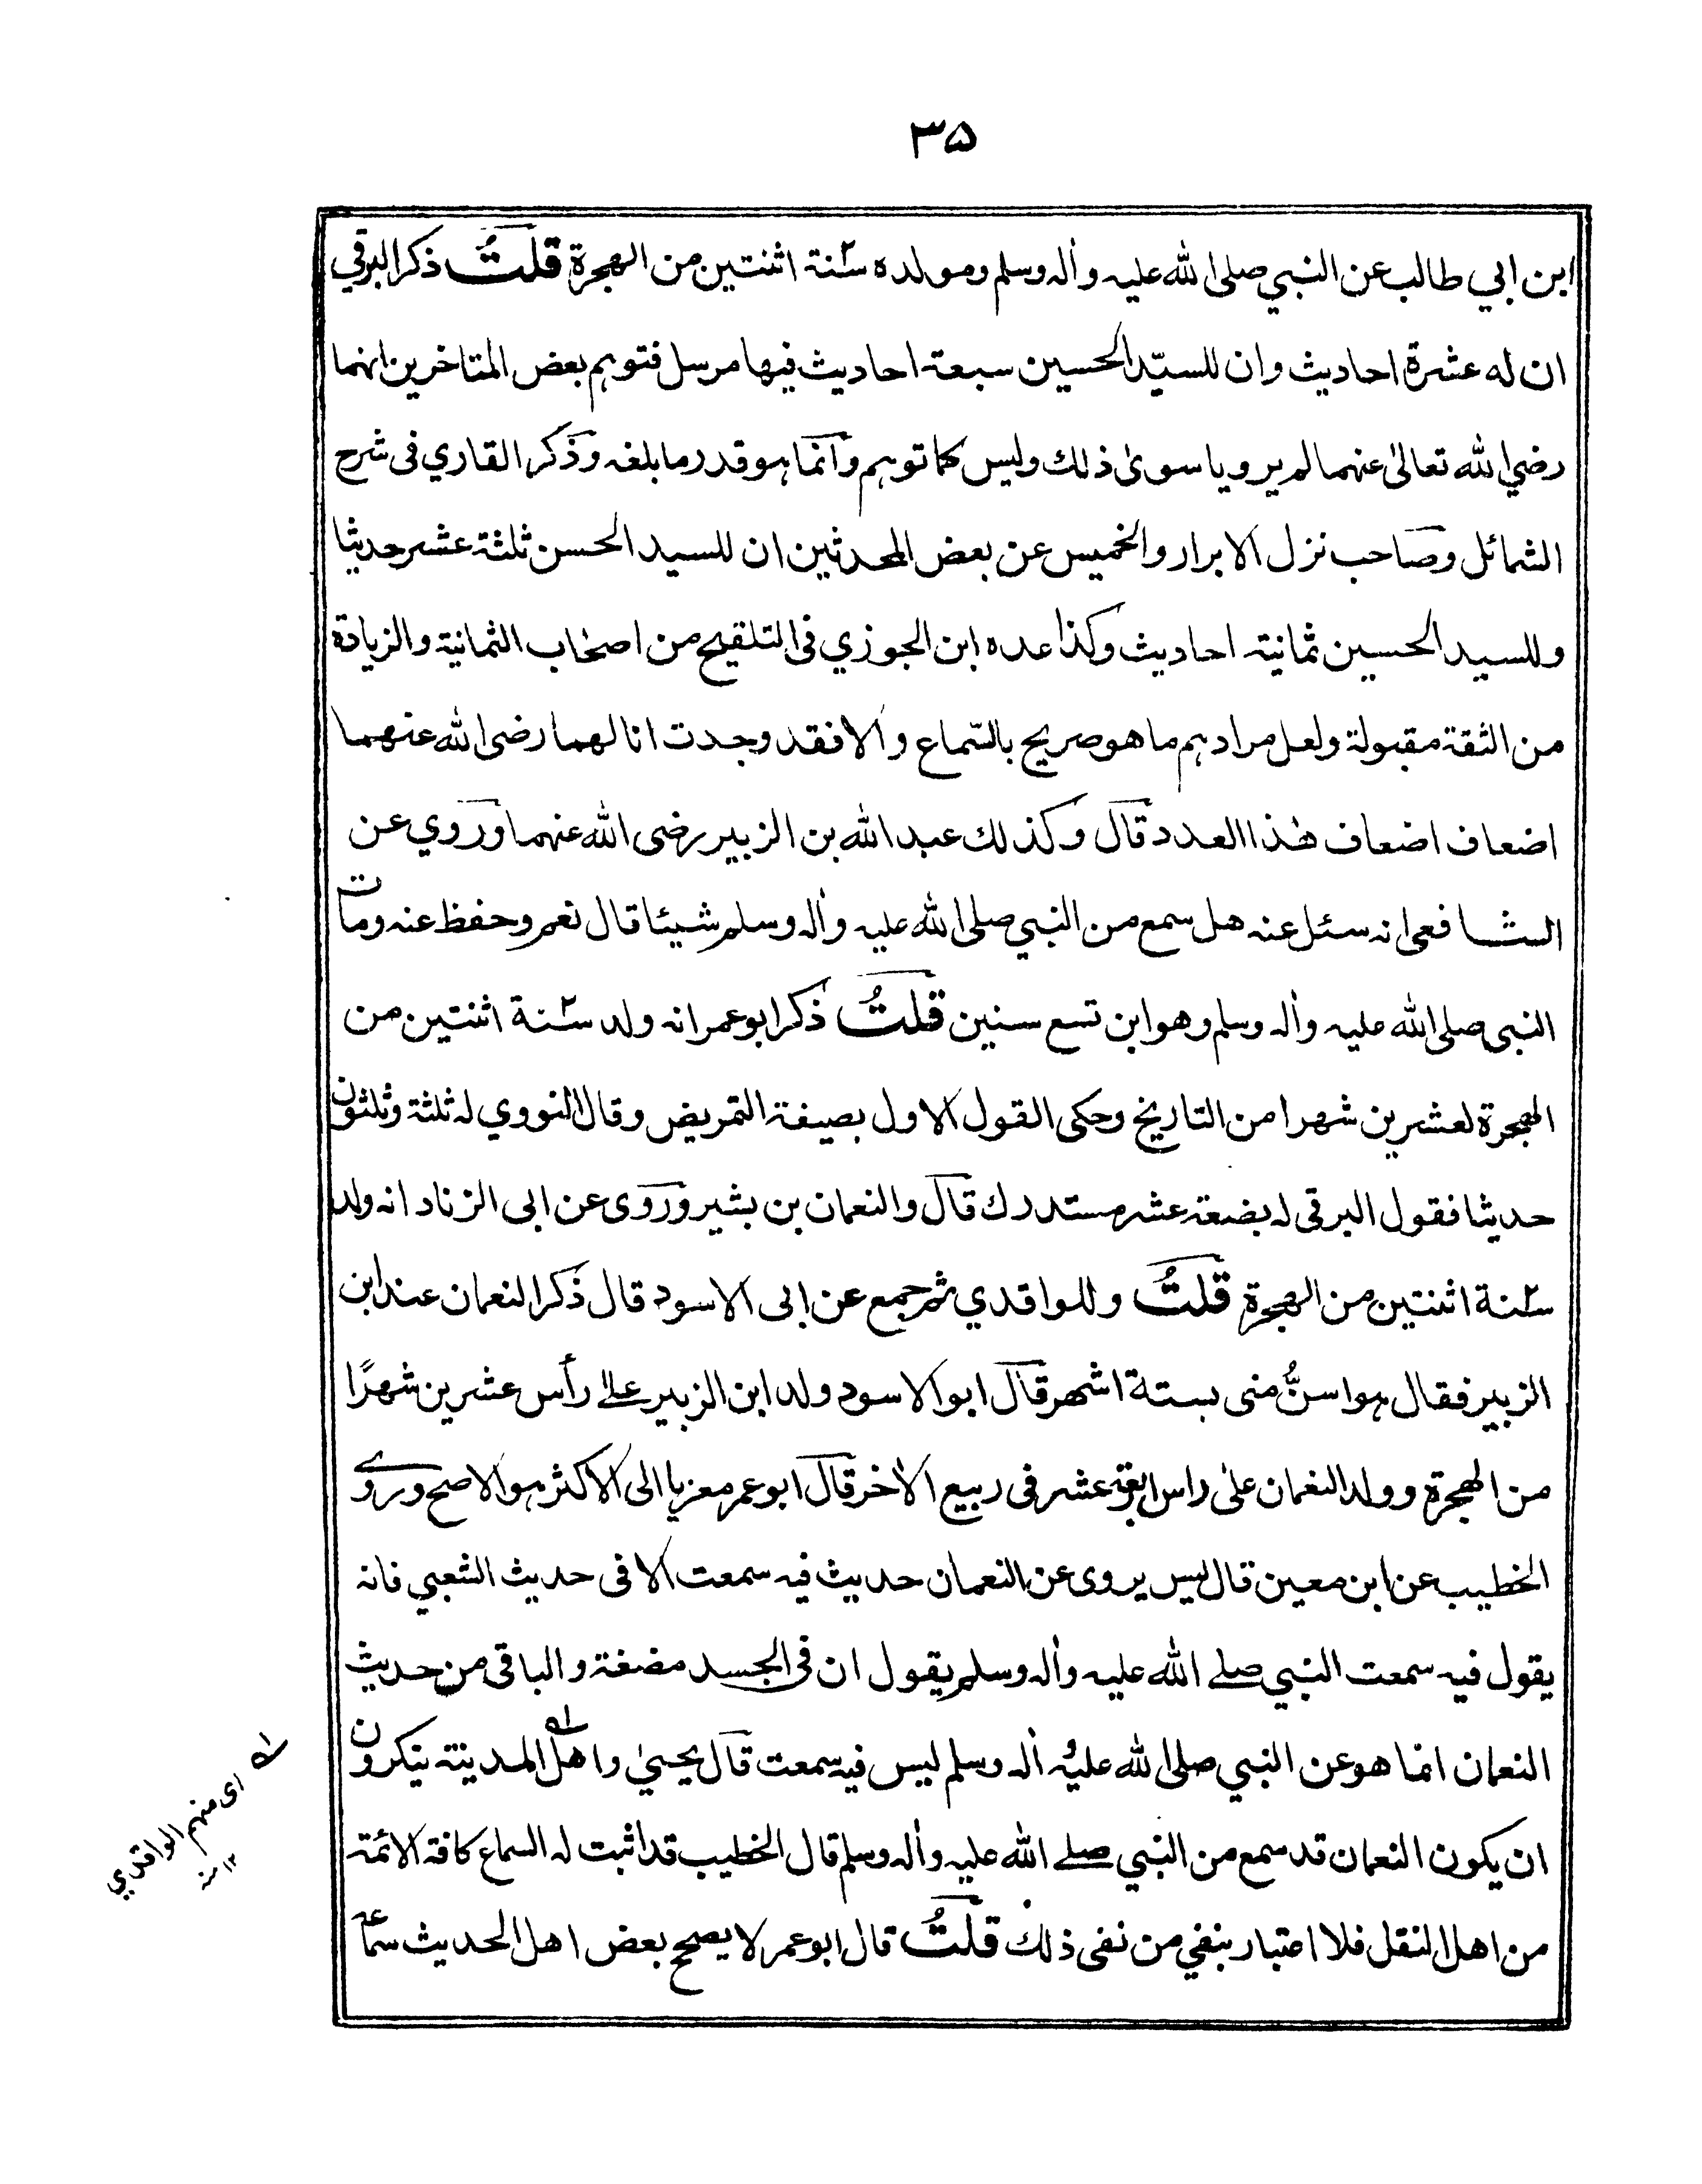 ۳۵
ابن ابي طالب عن النبي صلى الله عليه واٰله وسلم ومولده سنة اثنتين من الهجرة قلتُ ذكر البرقي
ان له عشرة احاديث وان للسيّد الحسين سبعة احاديث فيها مرسل فتوهم بعض المتاخرين انهما
رضي الله تعالىٰ عنهما لم يرويا سوىٰ ذلك وليس كما توهم وانما هو قدر ما بلغه وذكر القاري فى شرح
الشمائل وصاحب نزل الابرار والخميس عن بعض المحدثين ان للسيد الحسن ثلثة عشر حديثا
وللسيد الحسين ثمانية احاديث وكذا عده ابن الجوزي فى التلقيح من اصحاب الثمانية والزيادة
من الثقة مقبولة ولعل مرادهم ما هو صريح بالسّماع والا فقد وجدت انا لهما رضى الله عنهما
اضعاف اضعاف هٰذا العدد قال وكذلك عبد الله بن الزبير رضى الله عنهما وروي عن
الشافعى انه سئل عنه هل سمع من النبي صلى الله عليه واٰله وسلم شيئا قال نعم وحفظ عنه ومات
النبى صلى الله عليه واٰله وسلم وهو ابن تسع سنين قلتُ ذكر ابو عمر انه ولد سنة اثنتين من
الهجرة لعشرين شهرا من التاريخ وحكى القول الاول بصيغة التمريض وقال النووي له ثلثة وثلثون
حديثا فقول البرقى له بضعة عشر مستدرك قال والنعمان بن بشير وروى عن ابى الزناد انه ولد
سنة اثنتين من الهجرة قلتُ وللواقدي ثم جمع عن ابى الاسود قال ذكر النعمان عند ابن
الزبير فقال هو اسنُّ منى بستة اشهر قال ابو الاسود ولد ابن الزبير علے رأس عشرين شهرًا
من الهجرة وولد النعمان علىٰ راس اربعة عشر فى ربيع الاٰخر قال ابو عمر معزيا الى الاكثر هو الاصح وروے
الخطيب عن ابن معين قال ليس يروى عن النعمان حديث فيه سمعت الا فى حديث الشعبي فانه
يقول فيه سمعت النبي صلے الله عليه واٰله وسلم يقول ان فى الجسد مضغة والباقى من حديث
النعمان انما هو عن النبي صلى الله عليه واٰله وسلم ليس فيه سمعت قال يحيىٰ واهل المدينة ينكرون
ان يكون النعمان قد سمع من النبي صلے الله عليه واٰله وسلم قال الخطيب قد اثبت له السماع كافة الائمة
من اهل النقل فلا اعتبار بنفي من نفى ذلك قلتُ قال ابو عمر لا يصحح بعض اهل الحديث سماعه
له اى منهم الواقدي
۱۲ منه